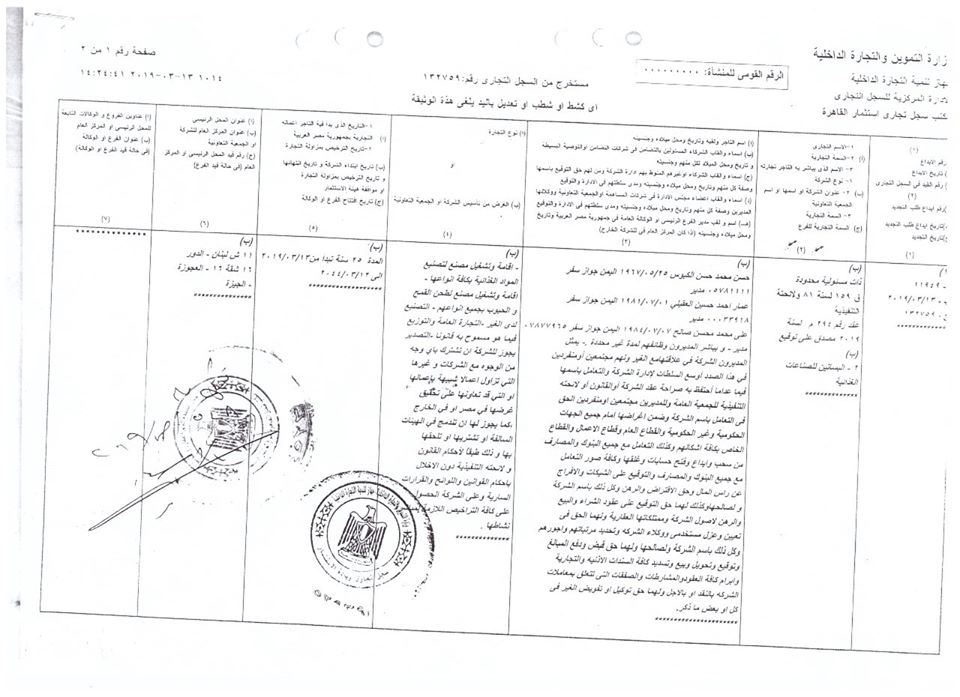 زارة التموين والتجارة الداخلية
هاز تنمية التجارة الداخلية
لادارة المركزية للسجل التجارى
كتب سجل تجارى استثمار القاهرة
الرقم القومى للمنشأة: ٠٠٠٠٠٠٠٠٠
مستخرج من السجل التجارى رقم: ١٣٢٧٥٩
اى كشط او شطب او تعديل باليد يلغى هذة الوثيقة
صفحة رقم ١ من ٢
١٠١٤ ١٣-٠٣-٢٠١٩ ١٤:٢٤:٤١
(١)
رقم الايداع
تاريخ الايداع
رقم القيد فى السجل التجارى
(٢)
رقم ايداع طلب التجديد
تاريخ ايداع طلب التجديد
تاريخ التجديد
(١)
١١٩٤٩
٢٠١٩/٠٣/١٣
١٣٢٧٥٩
(أ) ١-الاسم التجارى
٢- السمة التجارية
٣- الاسم الذى يباشر به التاجر تجارته
(ب) ١- نوع الشركة
٢- عنوان الشركة او اسمها او اسم
الجمعية التعاونية
٣- السمة التجارية
(ج) السمة التجارية للفرع
(٢)
(ب)
ذات مسئولية محدودة
ق ١٥٩ لسنة ٨١ ولائحتة
التنفيذية
عقد رقم ٢٩٤ م لسنة
٢٠١٩ مصدق على توقيع
(ب)
٢- البساتين للصناعات
الغذائية
(أ) اسم التاجر ولقبه وتاريخ ومحل ميلاده وجنسيته
(ب) اسماء والقاب الشركاء المسئولين بالتضامن فى شركات التضامن اوالتوصية البسيطة
و تاريخ ومحل الميلاد لكل منهم وجنسيته
(ج) اسماء والقاب الشركاء اوغيرهم المنوط بهم ادارة الشركة ومن لهم حق التوقيع باسمها
وصفة كل منهم وتاريخ ومحل ميلاده وجنسيته ومدى سلطتهم فى الادارة والتوقيع
(د) اسماء والقاب اعضاء مجلس الادارة فى شركات المساهمة اوالجمعية التعاونية ووكلائها
المديرين وصفة كل منهم وتاريخ ومحل ميلاده وجنسيته ومدى سلطتهم فى الادارة والتوقيع
(هـ) اسم و لقب مدير الفرع الرئيسى او الوكالة العامة فى جمهورية مصر العربية وتاريخ
ومحل ميلاده وجنسيته (اذا كان المركز العام للشركة الخارج)
(٣)
(ب)
حسن محمد حسن الكبوس ١٩٦٧/٠٥/٢٥ اليمن جواز سفر
٠٥٧٨١١١١ مدير
عمار احمد حسين العقيلى ١٩٨١/٠٧/٠١ اليمن جواز سفر
٠٠٠٣٣٩١٨ مدير
على محمد محسن صالح ١٩٨٤/٠٧/٠٧ اليمن جواز سفر ٠٧٨٧٧٩٦٥
مدير - و يباشر المديرون وظائفهم لمدة غير محددة .- يمثل
المديرون الشركة فى علاقتهامع الغير ولهم مجتمعين أومنفردين
في هذا الصدد أوسع السلطات لإدارة الشركة والتعامل باسمها
فيما عداما أحتفظ به صراحة عقد الشركة أوالقانون أو لائحته
التنفيذية للجمعية العامة وللمديرين مجتمعين اومنفردين الحق
في التعامل باسم الشركة وضمن اغراضها امام جميع الجهات
الحكومية وغير الحكومية والقطاع العام وقطاع الاعمال والقطاع
الخاص بكافة اشكالهم وكذلك التعامل مع جميع البنوك والمصارف
من سحب وايداع وفتح حسابات وغلقها وكافة صور التعامل
مع جميع البنوك والمصارف والتوقيع على الشيكات والأفراج
عن راس المال وحق الأقتراض والرهن وكل ذلك باسم الشركة
و لصالحهاوكذلك لهما حق التوقيع على عقود الشراء والبيع
والرهن لاصول الشركة وممتلكاتها العقارية ولهما الحق فى
تعيين وعزل مستخدمى ووكلاء الشركه وتحديد مرتباتهم واجورهم
وكل ذلك باسم الشركة ولصالحها ولهما حق قبض ودفع المبالغ
وتوقيع وتحويل وبيع وتسديد كافة السندات الاذنيه و التجارية
وابرام كافة العقودوالمشارطات والصفقات التى تتعلق بمعاملات
الشركه بالنقد او بالاجل ولهما حق توكيل او تفويض الغير فى
كل او بعض ما ذكر.
****************
(أ) نوع التجارة
و
(ب) الغرض من تأسيس الشركة أو الجمعية التعاونية
(٤)
(ب)
- اقامة وتشغيل مصنع لتصنيع
المواد الغذائية بكافة انواعها -
اقامة وتشغيل مصنع لطحن القمح
و الحبوب بجميع انواعهم - التصنيع
لدى الغير -التجارة العامة والتوزيع
فيما هو مسموح به قانونا -التصدير
يجوز للشركة ان تشترك بأي وجه
من الوجوه مع الشركات و غيرها
التي تزاول اعمالا شبيهة بإعمالها
أو التي قد تعاونها على تحقيق
غرضها في مصر او في الخارج
،كما يجوز لها ان تندمج في الهيئات
السالفة او تشتريها او تلحقها
بها و ذلك طبقاً لأحكام القانون
و لائحته التنفيذية دون الاخلال
باحكام القوانين واللوائح والقرارات
السارية وعلى الشركة الحصول
على كافة التراخيص اللازمة
نشاطها .
***********
١-التاريخ الذى بدا فية التاجر اعماله
التجارية بجمهورية مصر العربية
٢-تاريخ الترخيص بمزاولة التجارة
(ب) تاريخ ابتداء الشركة و تاريخ انتهائها
و تاريخ الترخيص بمزاولة التجارة
او موافقة هيئة الاستثمار
(ج) تاريخ افتتاح الفرع او الوكالة
(٥)
(ب)
المدة ٢٥ سنة تبدا من ٢٠١٩/٠٣/١٣
الى ٢٠٤٤/٠٣/١٢
***************
(أ) عنوان المحل الرئيسى
(ب) عنوان المركز العام للشركة
او الجمعية التعاونية
(ج) رقم قيد المحل الرئيسى او المركز
العام (فى حالة قيد الفرع)
(٦)
(ب)
١١ ش لبنان - الدور
١٦ شقة ١٦ - العجوزة
- الجيزة
***********
(أ) عناوين الفروع و الوكالات التابعة
للمحل الرئيسى او المركز العام
(ب) عنوان الفرع او الوكالة
(فى حالة قيد الفرع او الوكالة)
(٧)
***************